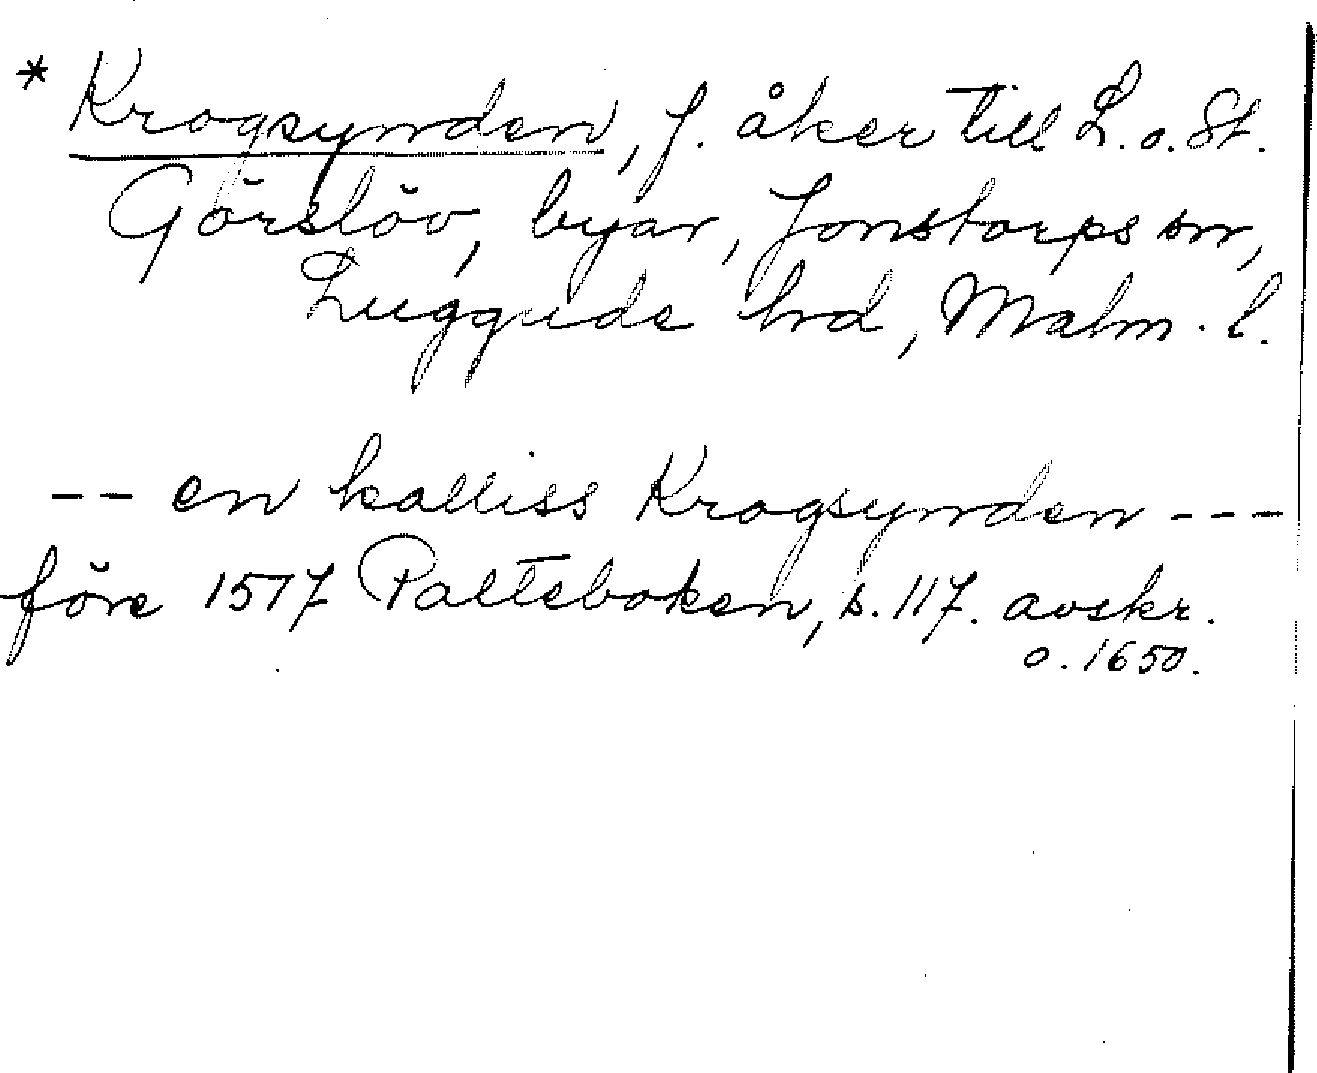 * Krogsynden, f. åker till L. o. St.
Görslöv, byar, Jonstorps sn,
Luggude hrd, Malm. l.
-- en kalliss Krogsynden ---
före 1517 Palteboken, s. 117. avskr.
o. 1650.